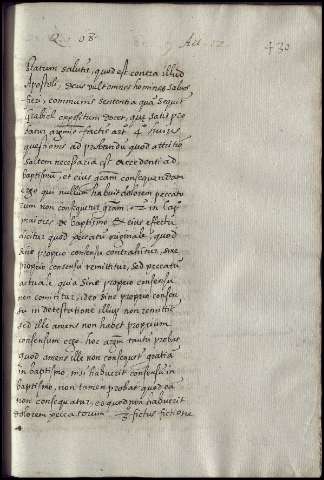 Q. 68. Art. 12. 430
statum salutis, quod est contra illud
Apostoli, Deus vult omnes homines salvos
fieri, communis sententia quã sequit
Gabriel expositum docet, que satis pro
batur argum̃is factis art. 4 huius
questionis ad probandũ quod attritio
saltem necessaria est accedenti ad
baptismũ, et eius gratiam consequendam
ergo qui nullum habuit dolorem peccato
rum non consequitur gratiam, in cap.
maiores de baptismo & eius effectu
dicitur quod peccatũ originale, quod
sine proprio consensu contrahitur, sine
proprio consensu remittitur, sed peccatũ
actuale quia sine proprio consensu
non comittitur, ideo sine proprio consen
su in detestatione illius non remittit
sed ille amens non habet proprium
consensum ergo. hoc argm̃ tantũ probat
quod amens ille non consequitur gratiã
in baptismo nisi habuerit consensũ in
baptismo, non tamen probat quod eã
non consequatur, eo quod non habuerit
dolorem peccatorum fictus fictione